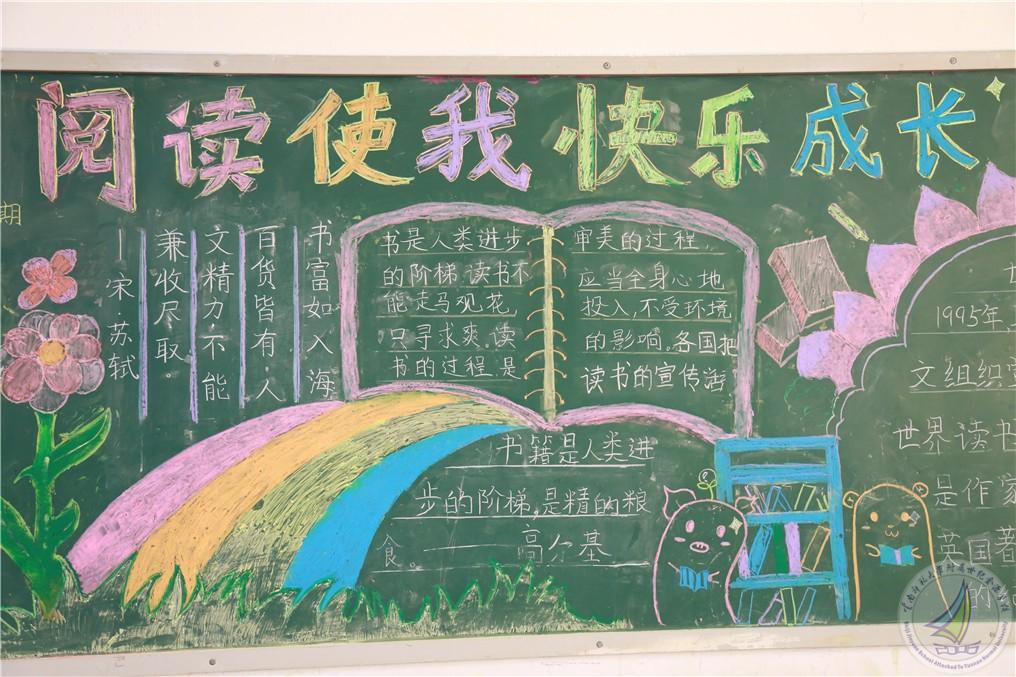 阅读使我快乐成长
期
书富如入海
百货皆有.人
文精力不能
兼收尽取。
—宋·苏轼
书是人类进步
的阶梯.读书不
能走马观花,
只寻求爽.读
书的过程是
审美的过程,
应当全身心地
投入,不受环境
的影响。各国把
读书的宣传海
书籍是人类进
步的阶梯,是精的粮
食。——高尔基
世
1995年,
文组织
世界读书
是作家
英国著
的
School Attached To Yunnan Normal University